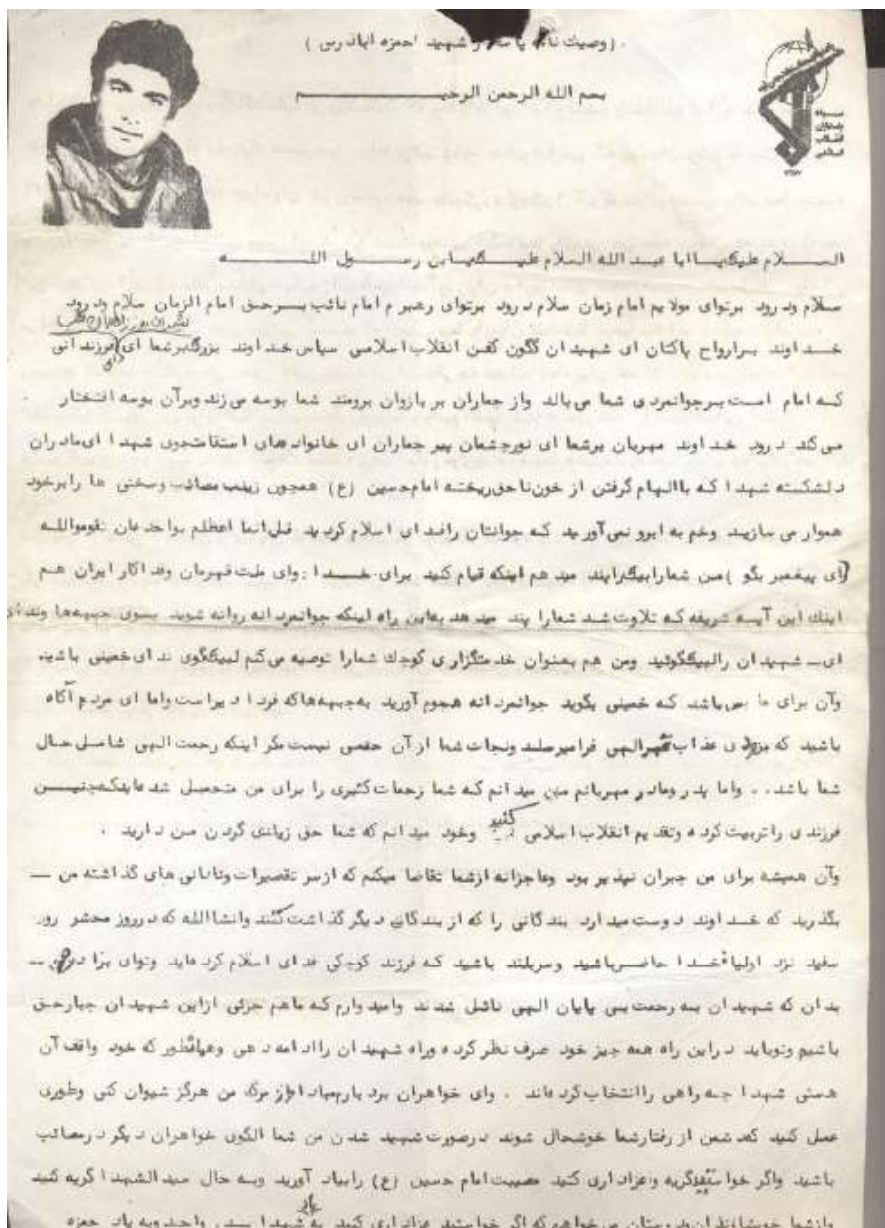 (وصیت نامه پاسدار شهید حمزه اباذری)
بسم الله الرحمن الرحیم
سپاه
پاسداران
انقلاب
اسلامی
السلام علیک یا ابا عبد الله السلام علیک یابن رسول الله
سلام ودرود برتوای مولایم امام زمان سلام درود برتوای رهبرم امام نائب برحق امام الزمان سلام ودرود
خداوند برارواح پاکتان ای شهیدان گلگون کفن انقلاب اسلامی سپاس خداوند بزرگ برشما ای فرزندانی
که امام است برجوانمردی شما می بالد واز جماران بر بازوان برومند شما بوسه می زند وبرآن بوسه افتخار
می کند درود خداوند مهربان برشما ای نورچشمان پیر جماران ای خانواد های شهدا ای مادران
دلشکسته شهدا که باالهام گرفتن از خون ناحق ریخته امام حسین (ع) همچون زینب مصائب وسختی ها را برخود
هموار می سازید وخم به ابرو نمی آورید که جوانتان رافدای اسلام کردید قل انما اعظکم بواحده ان تقوموالله
(ای پیغمبر بگو) من شمارابیک اپند میدهم اینکه قیام کنید برای خدا : وای ملت قهرمان وفداکار ایران هم
اینک این آیه شریفه که تلاوت شد شمارا پند میدهد به این راه اینکه جوانمردانه روانه شوید بسوی جبهه ها وندای
ای ـ شهیدان رالبیک گوئید ومن هم بعنوان خدمتگزاری کوچک شمارا توصیه می کنم لبیک گوی ندای خمینی باشید
وآن برای ما بس باشد که خمینی بگوید جوانمردانه هجوم آورید به جبهه هاکه فردا دیراست واما ای مردم آگاه
باشید که عذاب قهرالهی فرامیرسد ونجات شما از آن حتمی نیست مگر اینکه رحمت الهی شامل حال
شما باشد.. واما پدر ومادر مهربانم من میدانم که شما زحمات کثیری را برای من متحمل شده اید که چنین
فرزندی راتربیت کرده وتقدیم انقلاب اسلامی کنید وخود میدانم که شما حق زیادی گردن من دارید .
وآن همیشه برای من جبران نپذیر بود وعاجزانه ازشما تقاضا میکنم که ازسر تقصیرات ونادانی های گذاشته من ـ
بگذرید که خداوند دوست میدارد بندگانی را که از بندگان دیگر گذاشت کنند وانشاالله که درروز محشر رو
سفید نزد اولیاء خدا حاضرباشید وسربلند باشید که فرزند کوچکی فدای اسلام کرده اید وتوای برادرم ـ
بدان که شهیدان به رحمت بی پایان الهی نائل شدند وامیدوارم که ماهم جزئی ازاین شهیدان حق
باشیم وتوباید دراین راه همه چیز خود صرف نظر کرده وراه شهیدان راادامه دهی وهمانطور که خود واقف آن
هستی شهدا چه راهی راانتخاب کرده اند . وای خواهران مبادا از مرگ من هرگز شیوان کنی وطوری
عمل کنید که دشمن از رفتارشما خوشحال شوند درصورت شهید شدن من شما الگوی خواهران دیگر درمصائب
باشید واگر خواستید گریه وعزاداری کنید مصیبت امام حسین (ع) رابیاد آورید وبه حال سیدالشهدا گریه کنید
وازشما خویشاوندان ودوستان می خواهم که اگر خواستید عزاداری کنید به یاد شهدا وبه یاد حمزه